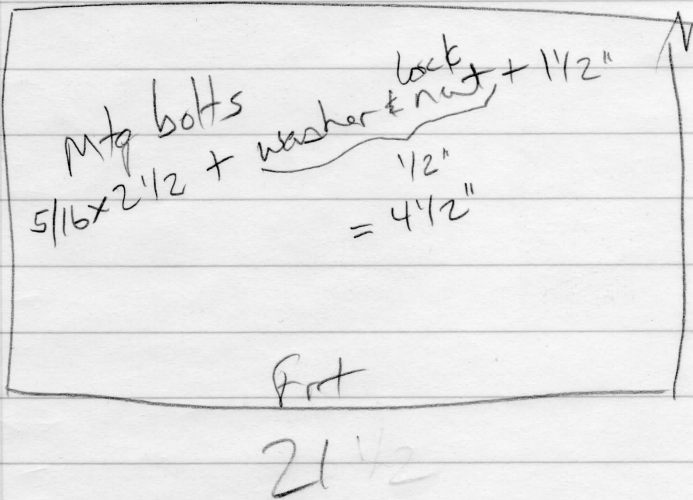 Mtg bolts
5/16 x 2 1/2 + washer & lock nut + 1 1/2"
1/2"
= 4 1/2"
Frnt
21 1/2